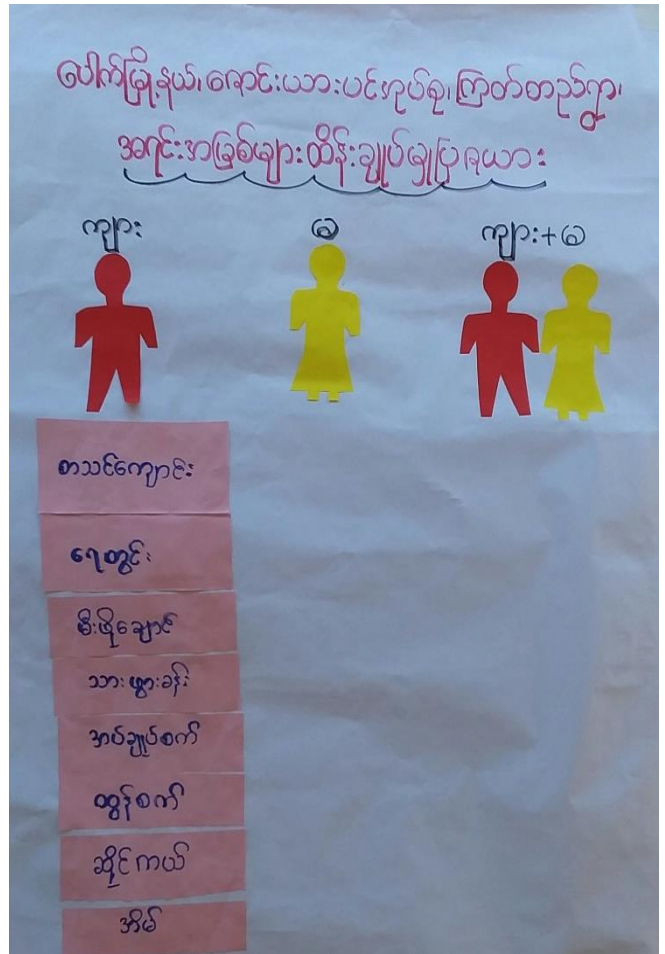 ပေါက်မြို့နယ်၊ ချောင်းယားပင်အုပ်စု၊ ကြတ်တည်ရွာ၊
အရင်းအမြစ်များထိန်းချုပ်မှုပြဇယား
ကျား မ ကျား+မ
စာသင်ကျောင်း
ရေတွင်း
မီးဖိုချောင်
သားဖွားခန်း
အပ်ချုပ်စက်
ထွန်စက်
ဆိုင်ကယ်
အိမ်